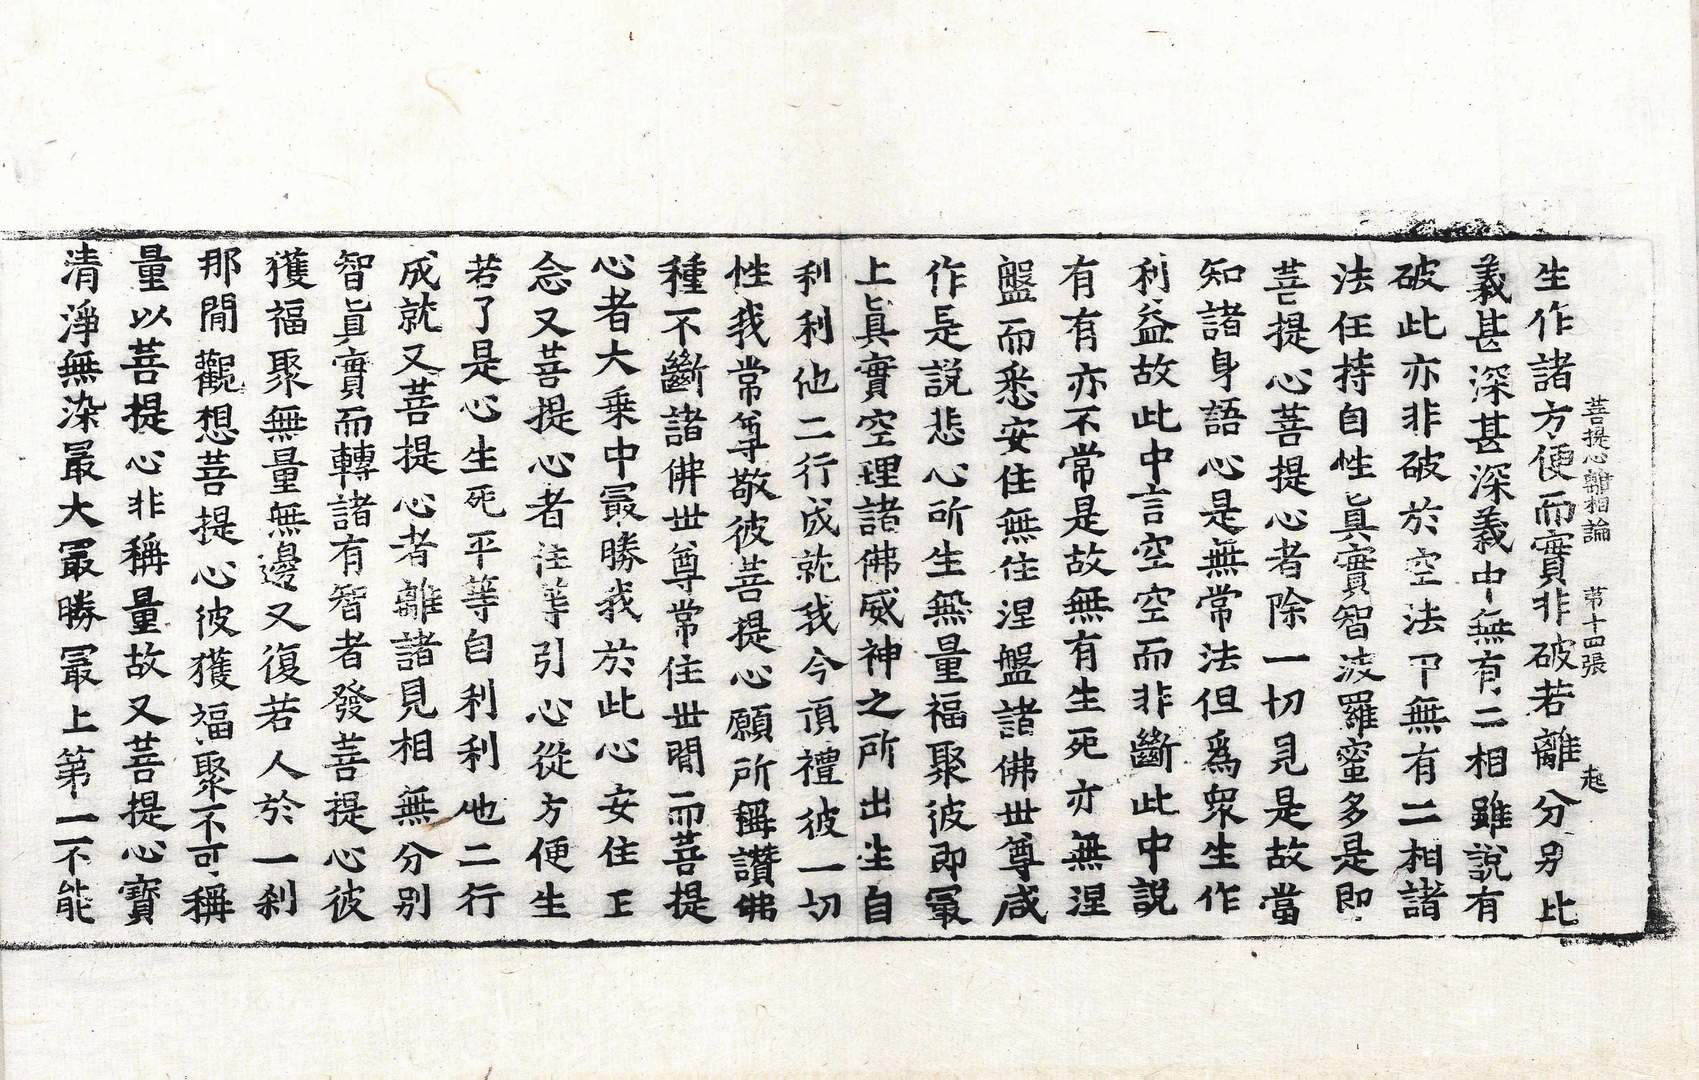 菩提心離相論 第十四張 起
生作諸方便而實非破若離分別此
義甚深甚深義中無有二相雖說有
破此亦非破於空法卽無有二相諸
法任持自性眞實智波羅蜜多是卽
菩提心菩提心者除一切見是故當
知諸身語心是無常法但爲衆生作
利益故此中言空空而非斷此中說
有有亦不常是故無有生死亦無涅
盤而悉安住無住涅盤諸佛世尊咸
作是說悲心所生無量福聚彼卽㝡
上眞實空理諸佛威神之所出生自
利利他二行成就我今頂禮彼一切
性我常尊敬彼菩提心願所稱讚佛
種不斷諸佛世尊常住世閒而菩提
心者大乘中㝡勝我於此心安住正
念又菩提心者住等引心從方便生
若了是心生死平等自利利他二行
成就又菩提心者離諸見相無分別
智眞實而轉諸有智者發菩提心彼
獲福聚無量無邊又復若人於一刹
那閒觀想菩提心彼獲福聚不可稱
量以菩提心非稱量故又菩提心寶
清淨無染㝡大㝡勝㝡上第一不能